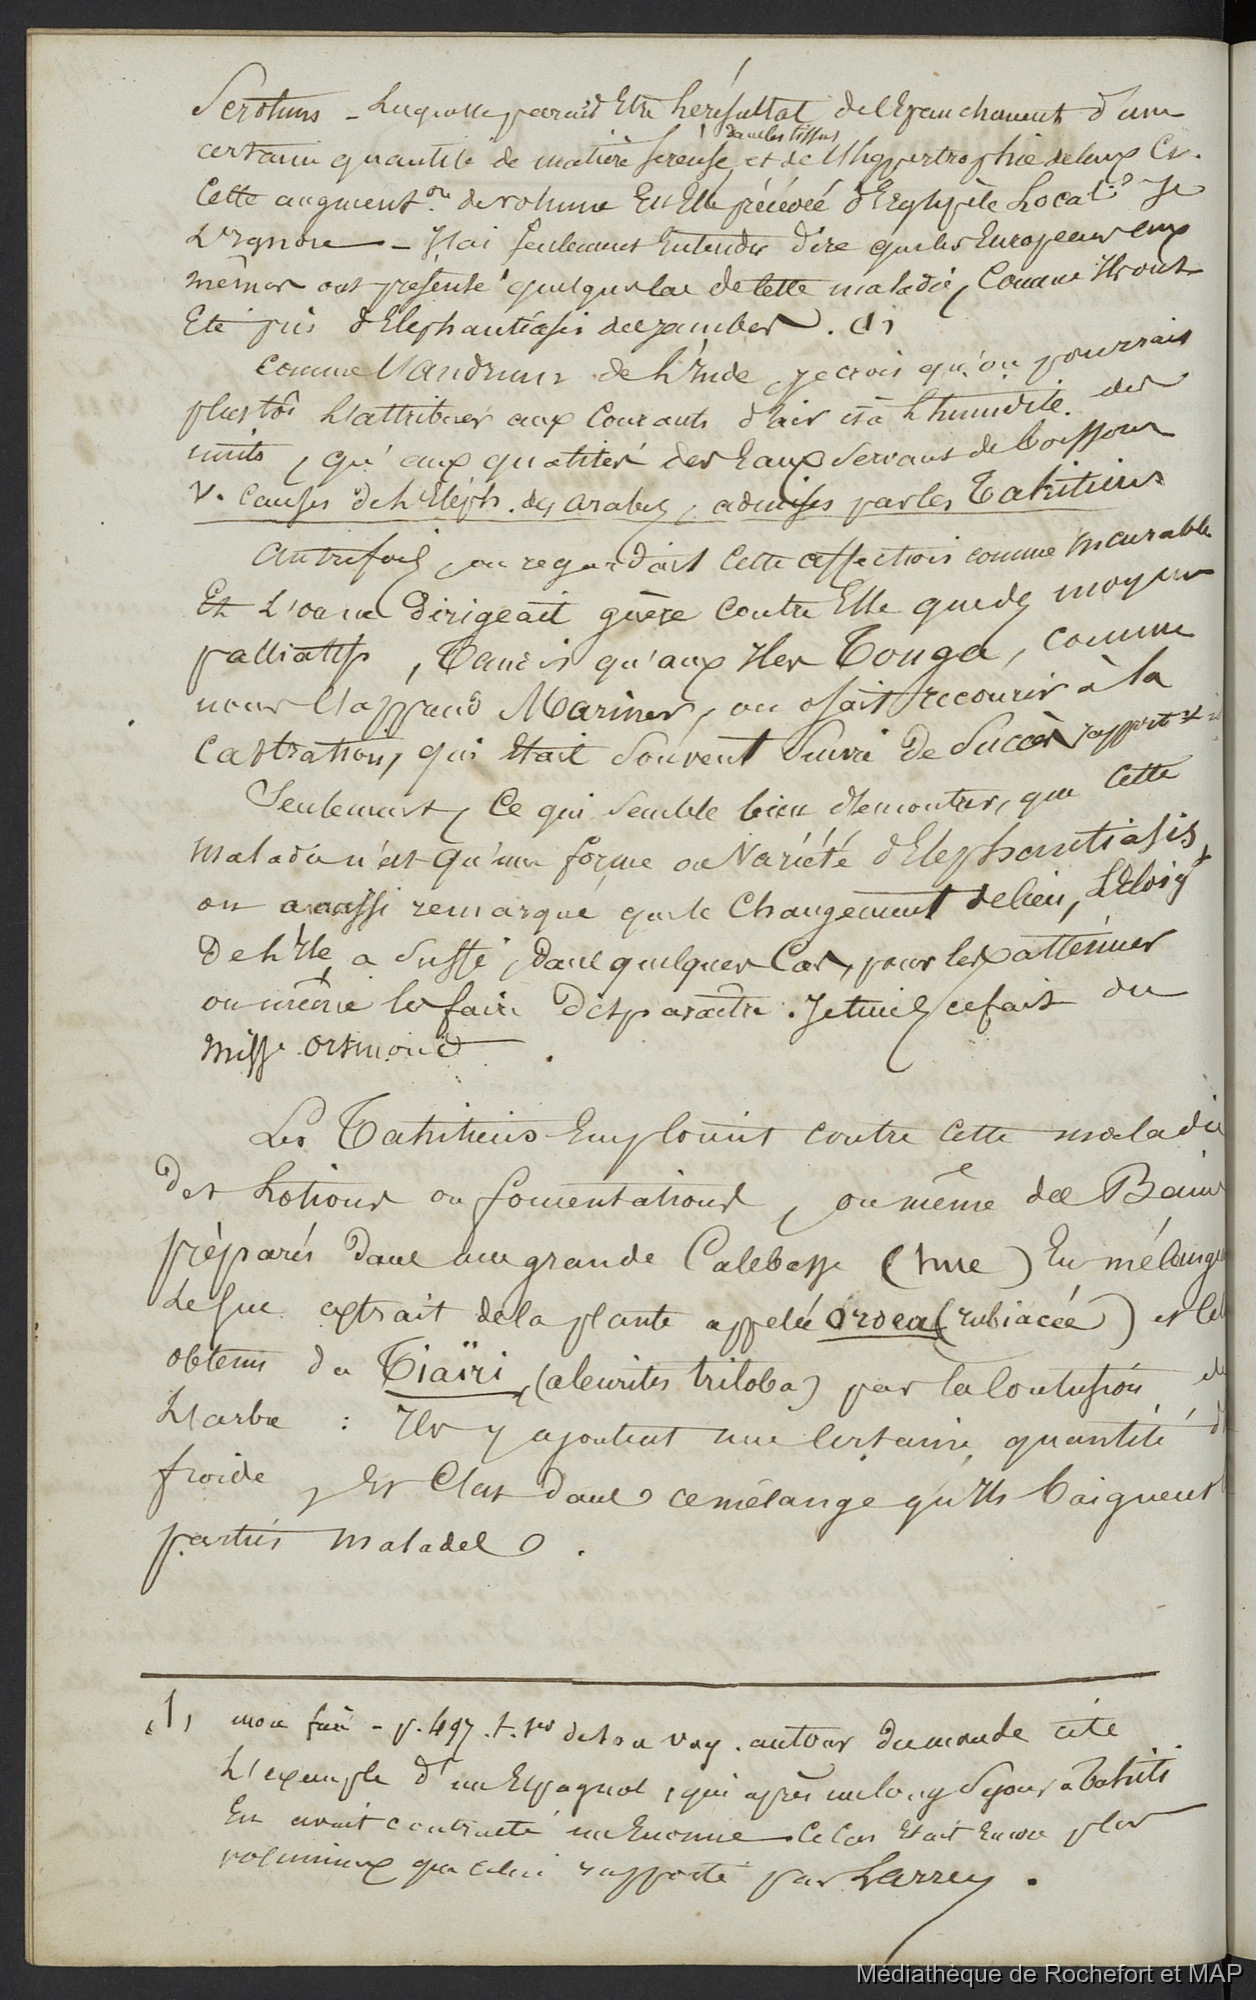 Scrotums - Laquelle parait Etre le résultat de l'Epanchement d'une
dans les tissus
certaine quantité de matière sereuse, et de l'hypertrophie de leur
Cette augment.on de volume Est Elle précédée d'Erysipèle Local? Je
L'Ignore - J'ai seulement Entendu dire que les Européens eux
mêmes ont présenté quelques Cas de Cette maladie, Comme Ils ont
Eté pris d'Elephantiasis des jambes. (1)
Comme l'andrum de l'Inde, je crois qu'on pourrait
plustôt L'attribuer aux Courants d'air et à L'humidité des
nuits, qu'aux qualités des Eaux Servant de boisson
V. Causes de L'Eléph. des arabes, admises par les Tahitiens
Autrefois, on regardait Cette affection comme Incurable
Et L'on ne Dirigeait guère Contre Elle que des moyens
palliatifs, Tandis qu'aux Iles Tonga, comme
nous l'apprend Mariner, on osait recourir à la
Castration, qui Etait Souvent Suivi de Succès rapporte
Seulement, Ce qui Semble bien démontrer, que Cette
maladie n'est qu'une forme ou Variété d'Elephantiasis,
on a aussi remarqué que le Changement de lieu, L'Eloigt
De L'Ile, a Suffi, dans quelques Cas, pour les atténuer
ou même les faire Disparaitre. Je tiens ce fait du
Miss. Orsmond.
Les Tahitiens Emploient contre Cette maladie
Des Lotions ou fomentations, ou même des Bains
préparés Dans une grande Calebasse (hue) En mélange
Le Suc extrait de la plante appelée oroea (rubiacée) et le
obtenu du Tiaïri, (aleurites triloba) par la Contusion de
L'arbre : Ils y ajoutent une Certaine quantité d
froide, Et C'est Dans ce mélange qu'Ils baignent
parties malades.
(1) mon frère - p. 497. t. 1er de son voy. autour du monde cite
L'exemple d'un Espagnol, qui après un long Sejour à Tahiti
En avait contracté un Enorme. Ce Cas Etait Encore plus
volumineux que celui rapporté par Larrey.
Médiathèque de Rochefort et MAP